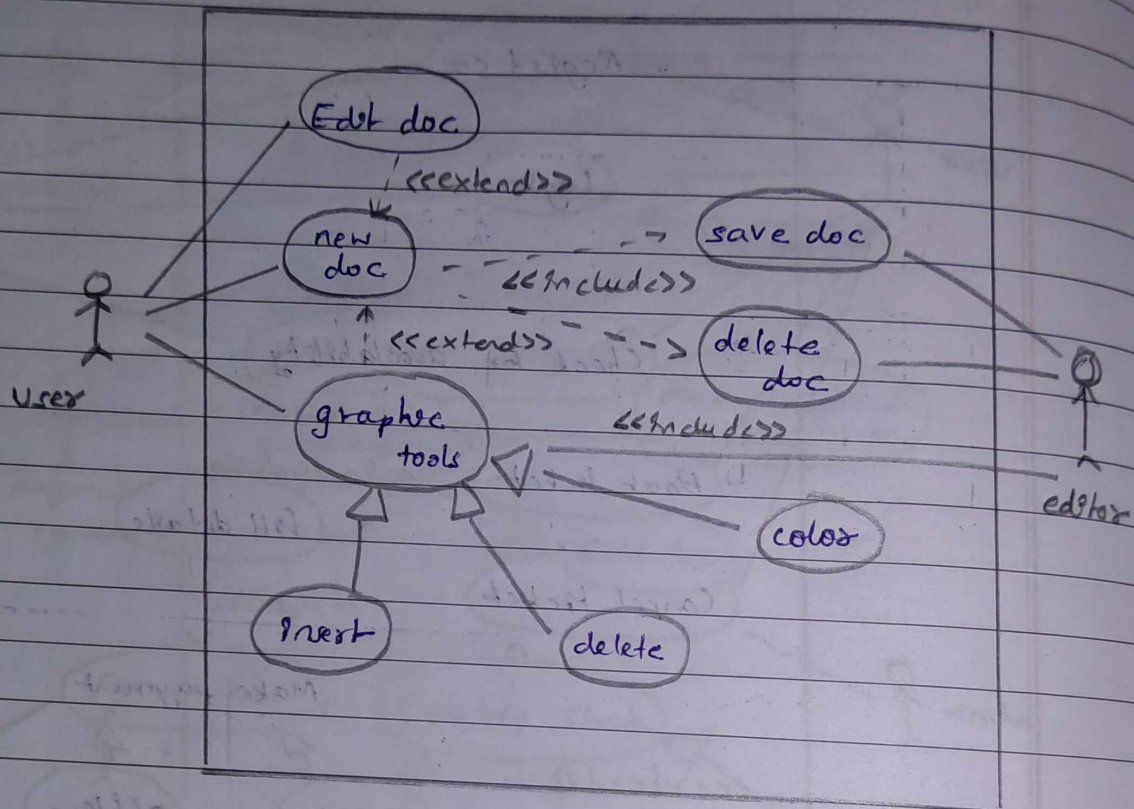 Edit doc
<<extend>>
new
doc
save doc
<<include>>
<<extend>>
delete
doc
user
graphic
tools
<<include>>
editor
color
insert
delete